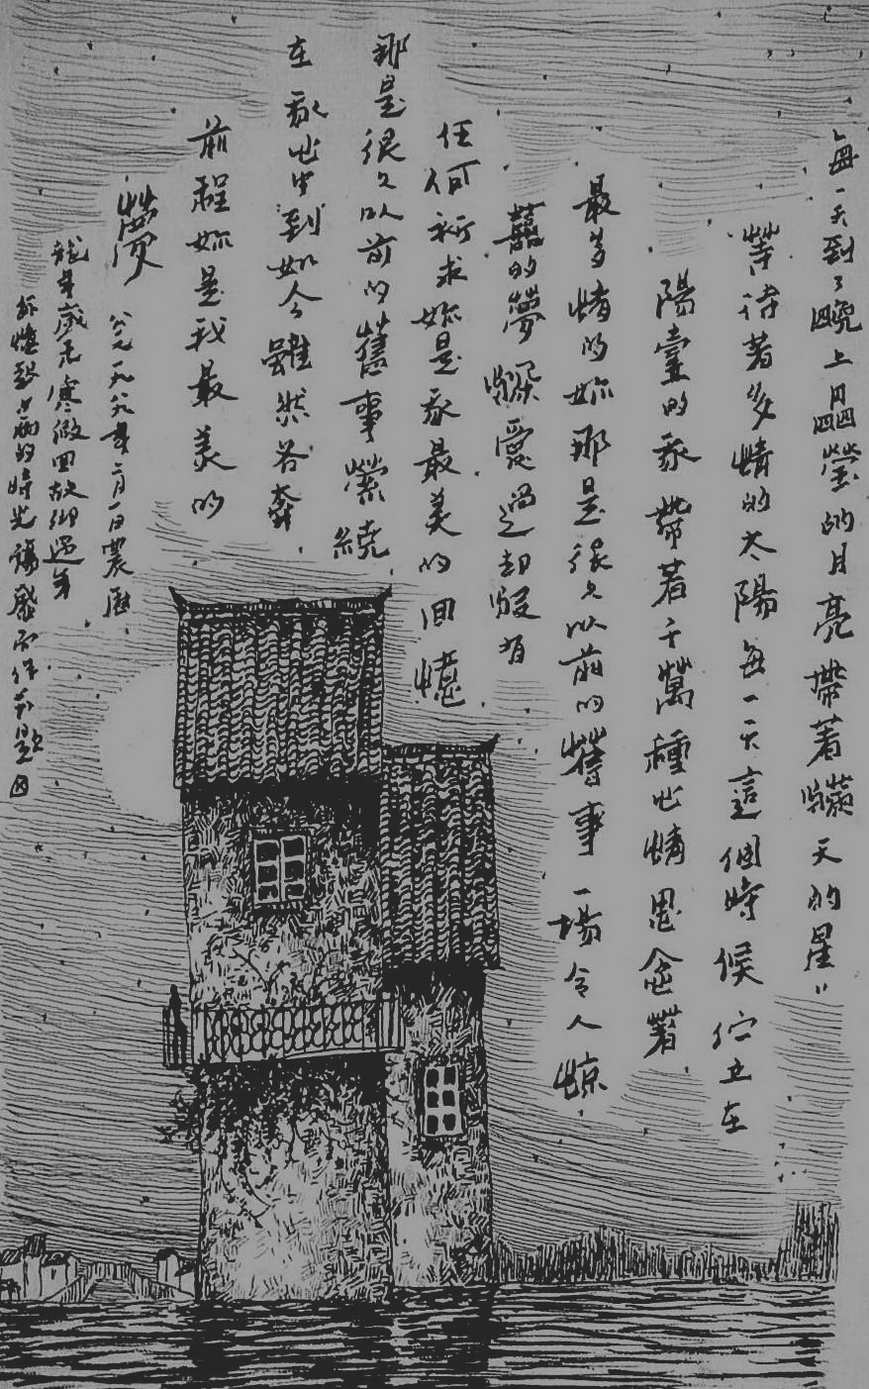 每一天到了晚上月晶瑩的月亮帶著滿天的星
等待著多情的太陽每一天這個時候佇立在
陽臺的我帶著千萬種心情思念著
最多情的妳那是很久以前的舊事一場令人驚
囍的夢深愛過却沒有
任何祈求妳是我最美的回憶
那是很久以前的舊事縈繞
在我心中到如今雖然各奔
前程妳是我最美的
夢
公元一九八九年二月一日農曆
龍年歲末寒假回故鄉過年
時光 而作并題